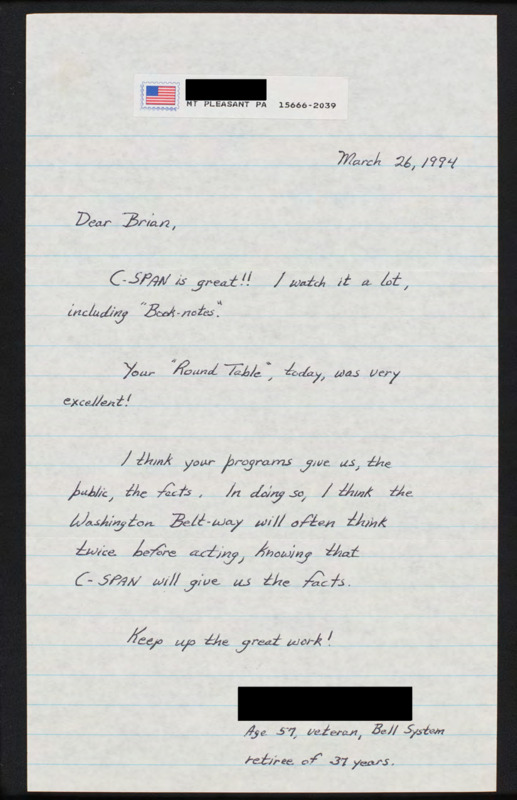 MT PLEASANT PA 15666-2039
March 26, 1994
Dear Brian,
C-SPAN is great!! I watch it a lot,
including "Book-notes".
Your "Round Table", today, was very
excellent!
I think your programs give us, the
public, the facts. In doing so, I think the
Washington Belt-way will often think
twice before acting, knowing that
C-SPAN will give us the facts.
Keep up the great work!
Age 57, veteran, Bell System
retiree of 37 years.